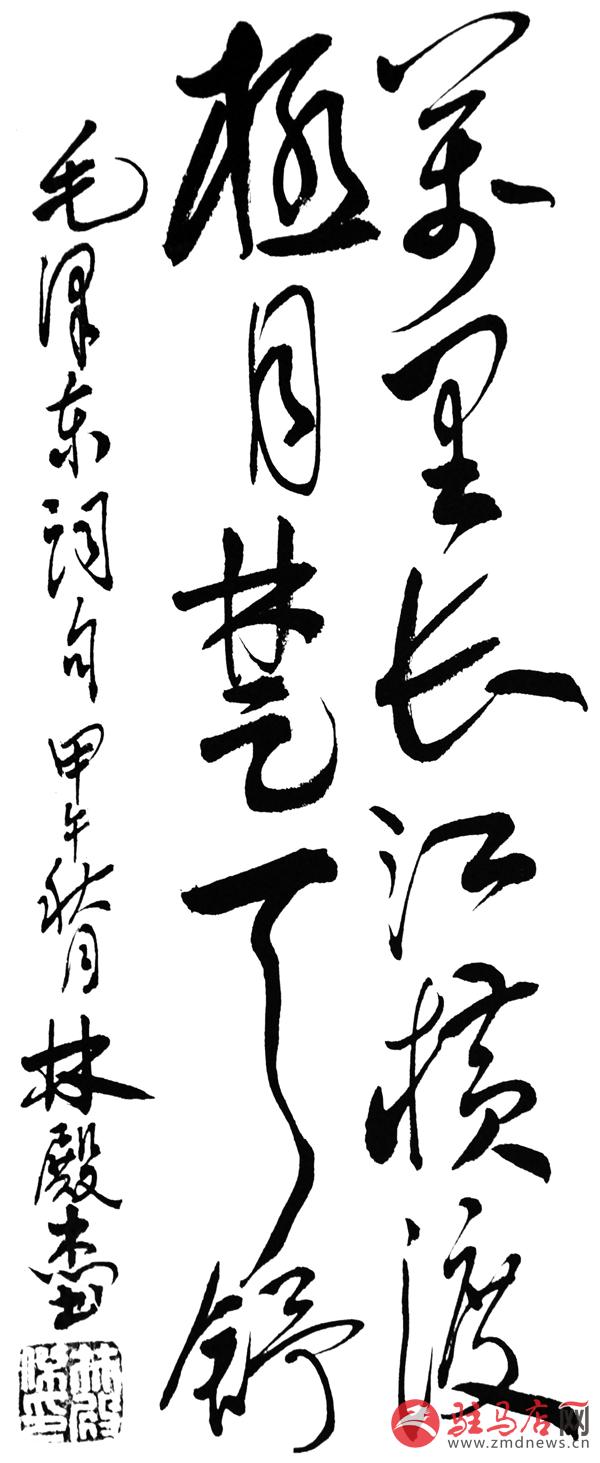 萬里长江横渡
極目楚天舒
毛泽东词句 甲午秋月 林殿杰书
驻马店网
www.zmdnews.cn